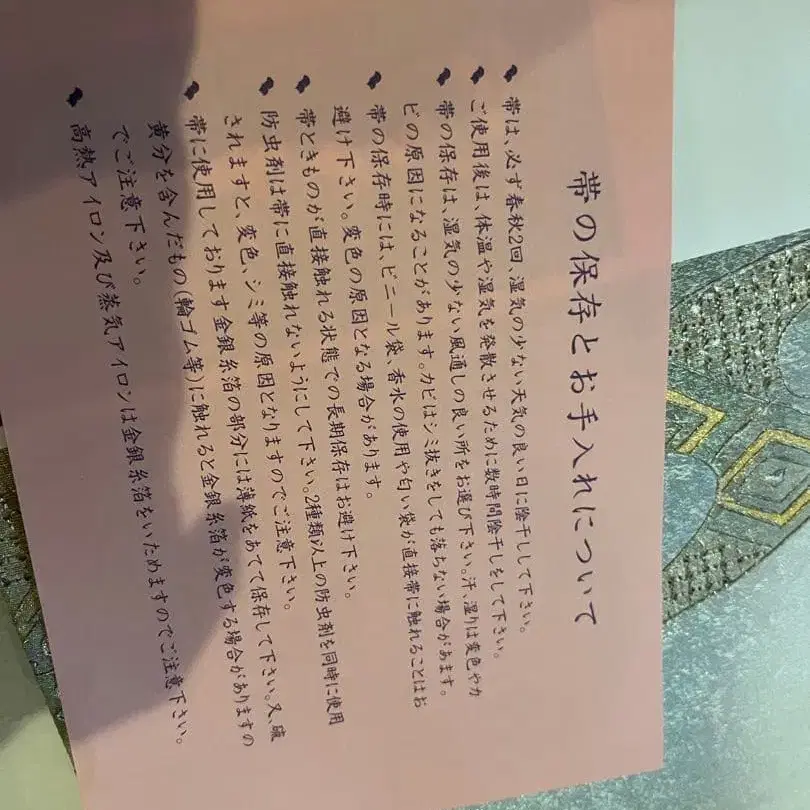 帯の保存とお手入れについて
帯は、必ず春秋2回、湿気の少ない天気の良い日に陰干しして下さい。
ご使用後は、体温や湿気を発散させるために数時間陰干しをして下さい。
帯の保存は、湿気の少ない風通しの良い所をお選び下さい。汗、湿りは変色やカ
ビの原因になることがあります。カビはシミ抜きをしても落ちない場合があます。
帯の保存時には、ビニール袋、香水の使用や匂い袋が直接帯に触れることはお
避け下さい。変色の原因となる場合があります。
帯ときものが直接触れる状態での長期保存はお避け下さい。
防虫剤は帯に直接触れないようにして下さい。2種類以上の防虫剤を同時に使用
されますと、変色、シミ等の原因となりますのでご注意下さい。
帯に使用しております金銀糸箔の部分には薄紙をあてて保存して下さい。又、硫
黄分を含んだもの(輪ゴム等)に触れると金銀糸箔が変色する場合がありますの
でご注意下さい。
高熱アイロン及び蒸気アイロンは金銀糸箔をいためますのでご注意下さい。